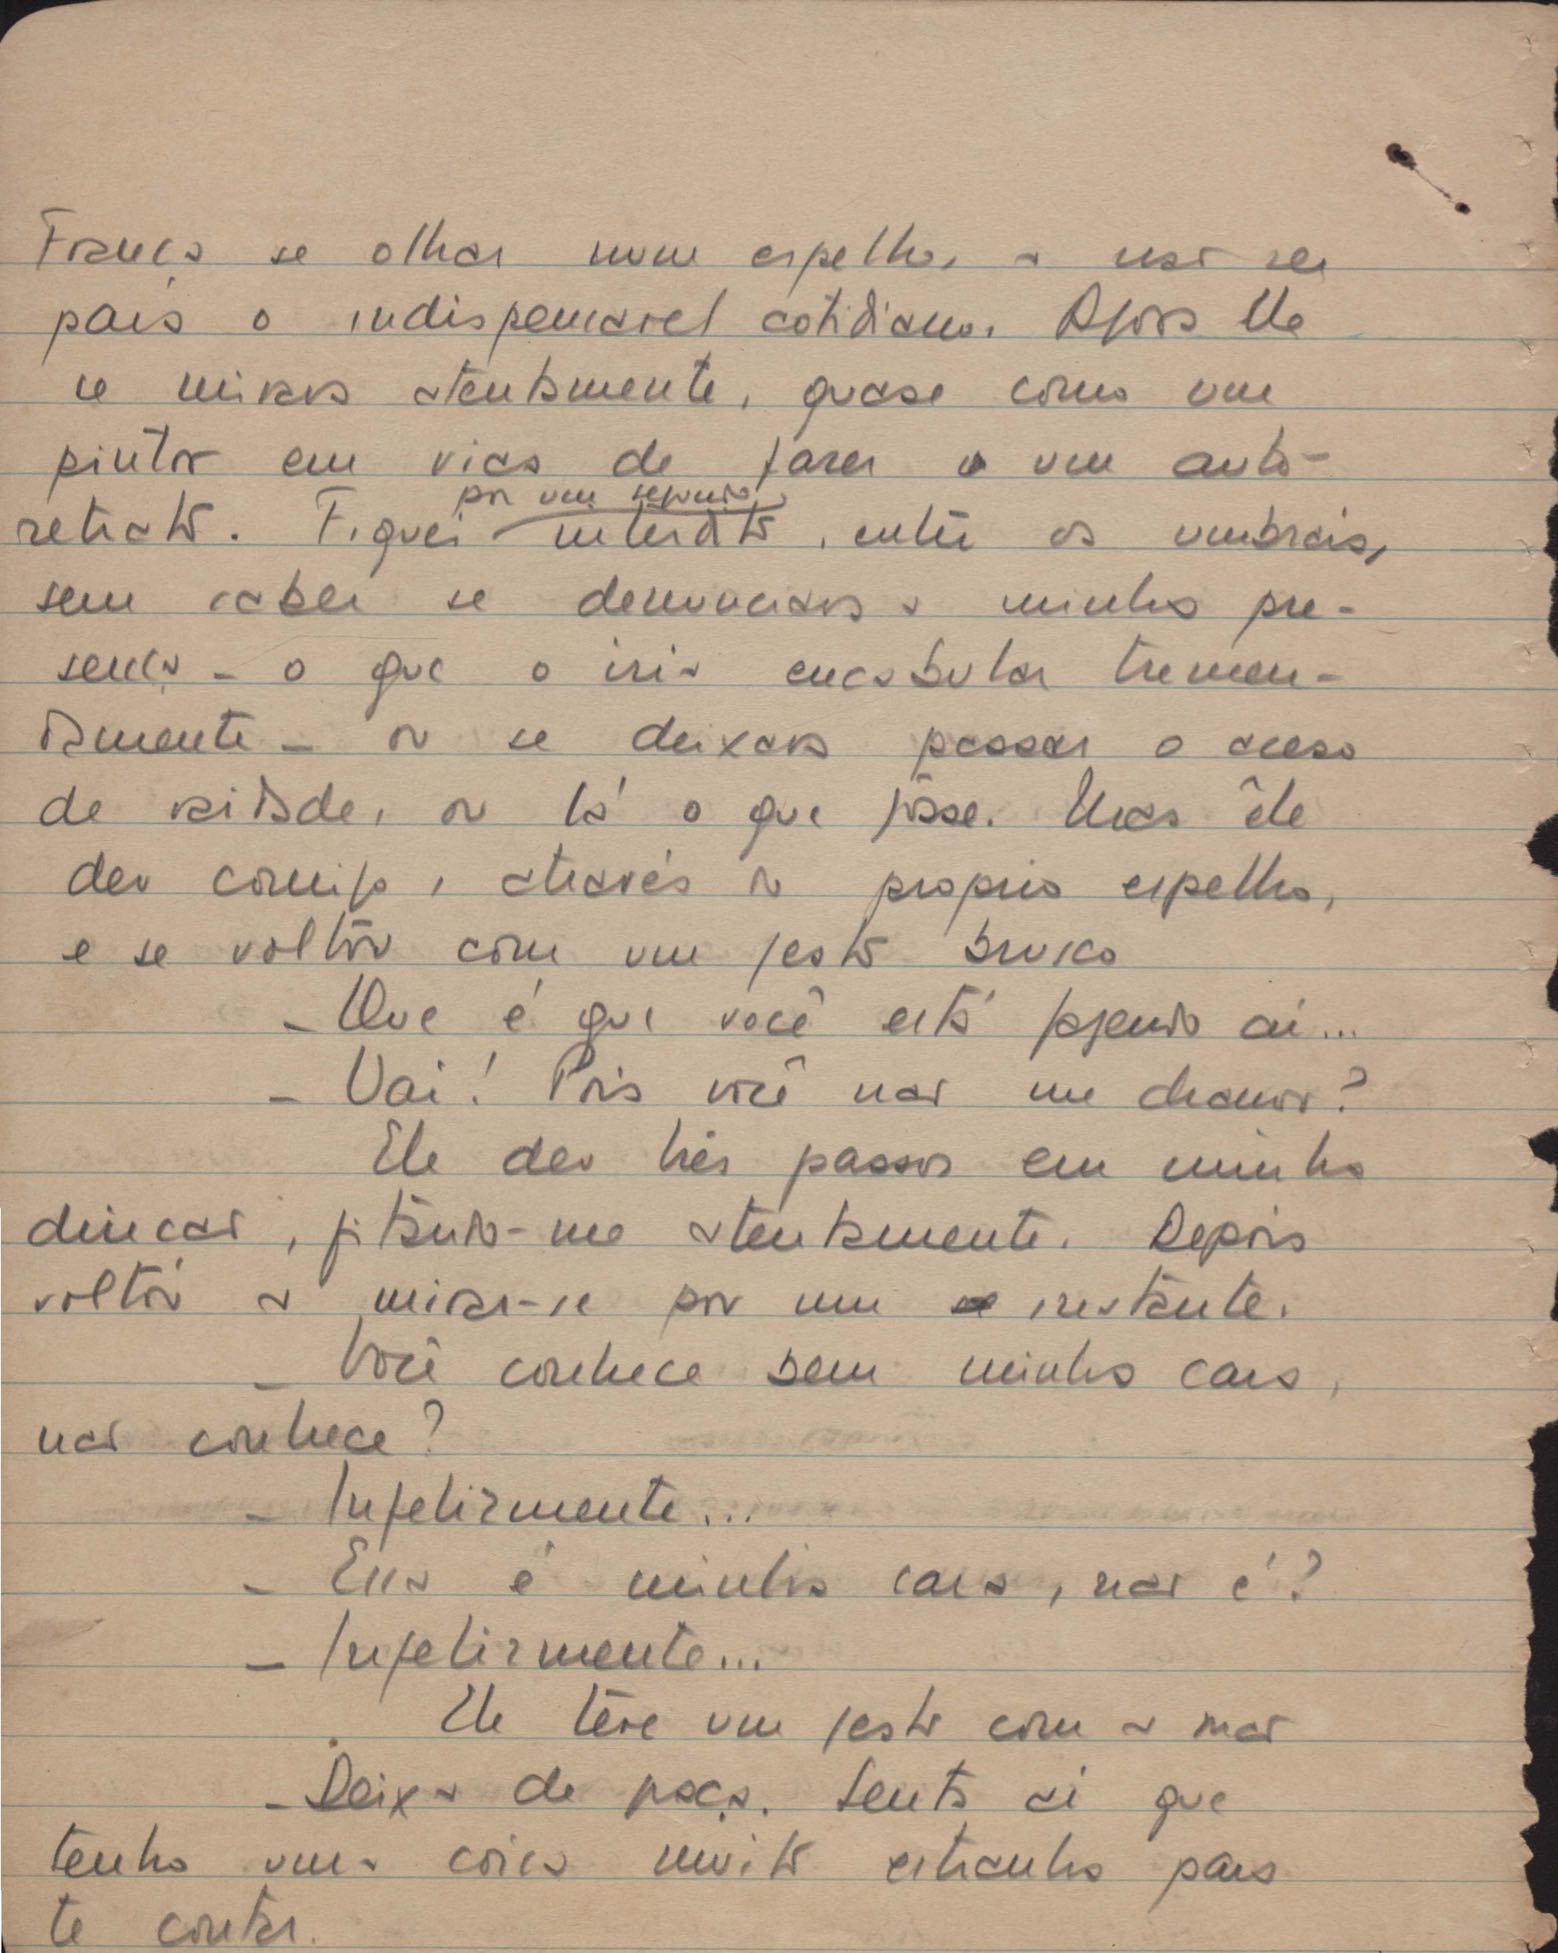 França se olhar num espelho, a nar ser
para o indispensavel cotidiano. Agora ele
se mirava atentamente, quase como um
pintor em vias de fazer um auto-
retrato. Fiquei por um segundo interdito, entre os umbrais,
sem saber se denunciava a minha pre-
sença - o que o iria encabular tremen-
damente - ou se deixava passar o acesso
de vaidade, ou lá o que fôsse. Mas êle
deu comigo, através do proprio espelho,
e se voltou com um gesto brusco
- Que é que você está fazendo aí...
- Uai! Pois você nar me chamou?
Ele deu três passos em minha
direcar, fitando-me atentamente. Depois
voltou a mirar-se por um instante.
- Você conhece bem minha cara,
nar conhece?
- Infelizmente...
- Essa é minha cara, nar é?
- Infelizmente...
Ele têve um gesto com a mar
- Deixa de graça. Senta aí que
tenho uma coisa muito estranha para
te contar.